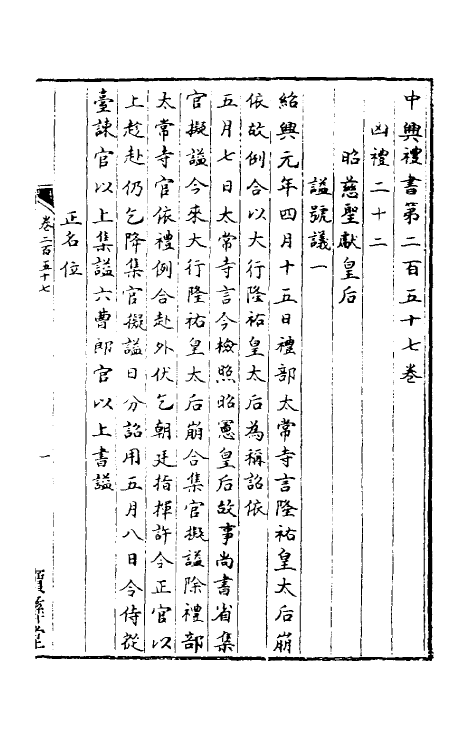 中興禮書第二百五十七卷
凶禮二十二
昭慈聖獻皇后
諡號議一
紹興元年四月十五日禮部太常寺言隆祐皇太后崩
依故例合以大行隆祐皇太后為稱詔依
五月七日太常寺言今檢照昭憲皇后故事尚書省集
官擬諡今來大行隆祐皇太后崩合集官擬諡除禮部
太常寺官依禮例合赴外伏乞朝廷指揮許令正官以
上趁赴仍乞降集官擬諡日分詔用五月八日令侍從
臺諫官以上集諡六曹郎官以上書諡
正名位
卷二百五十七
一